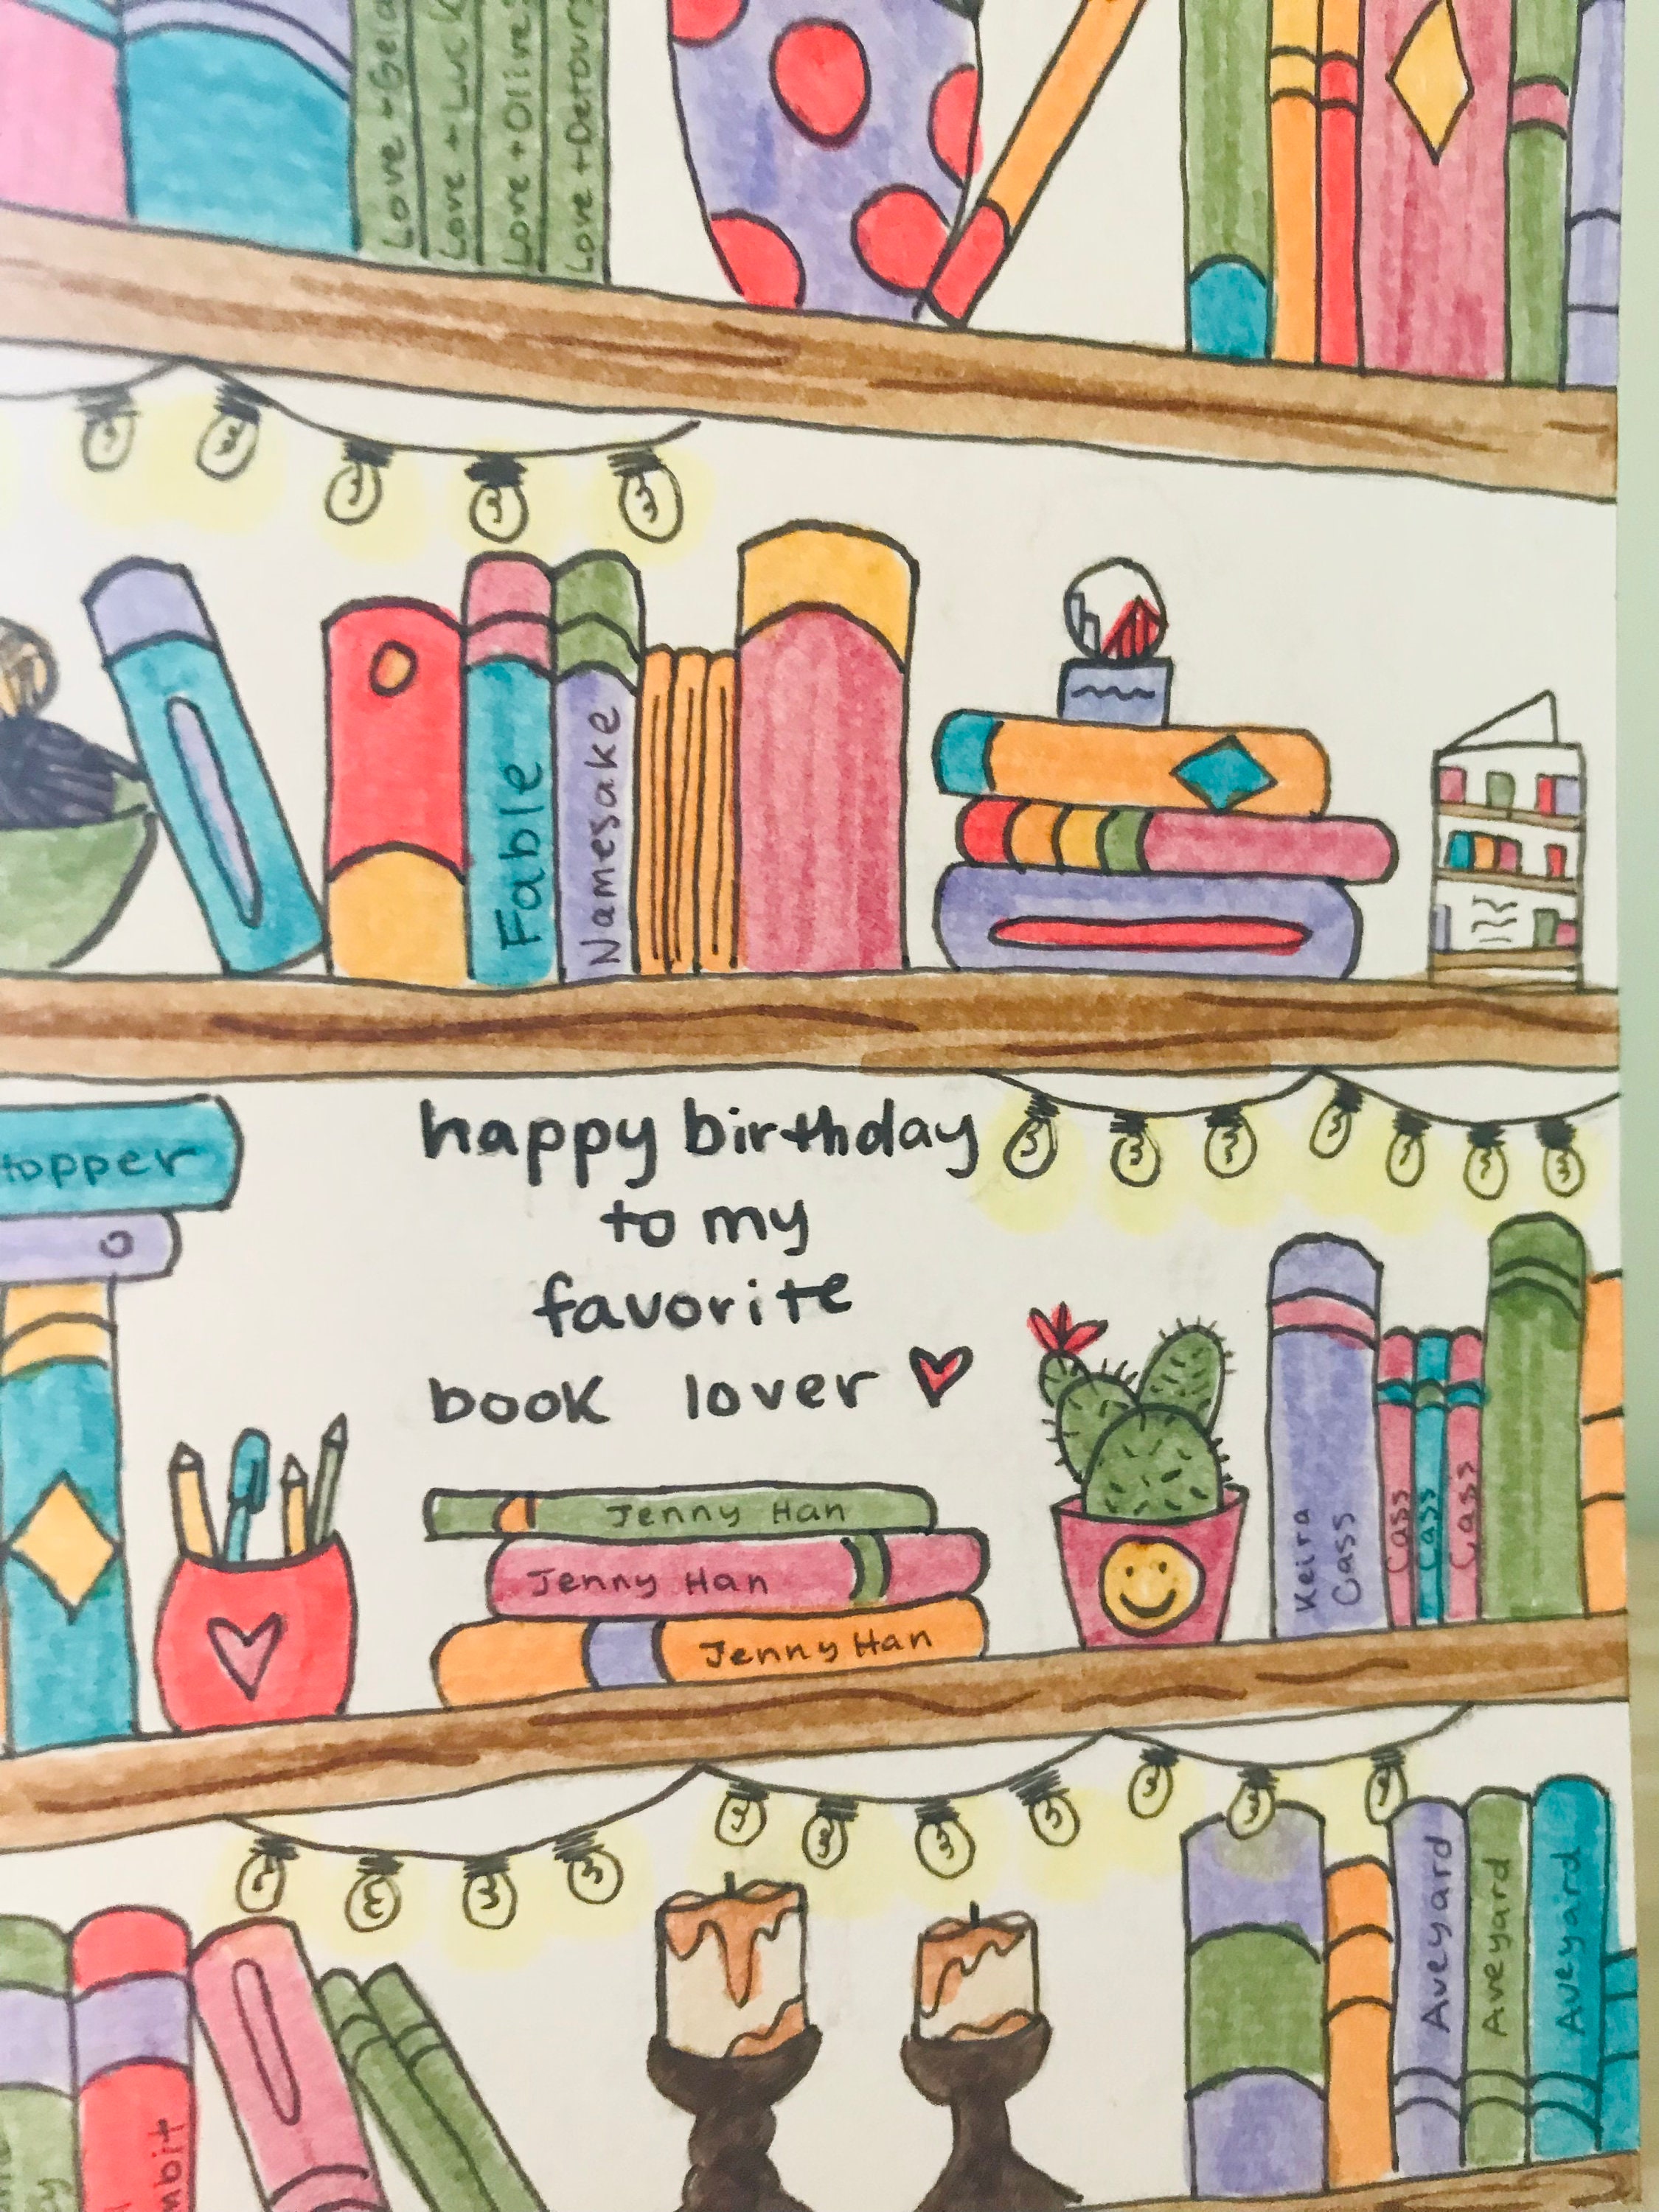 Love + Gela
Love + Luck
Love + Olive
Love + Detour
Fable
Namesake
happy birthday
to my
favorite
book lover
topper
Jenny Han
Jenny Han
Jenny Han
Keira
Cass
Cass
Cass
Cass
Aveyard
Aveyard
Aveyard